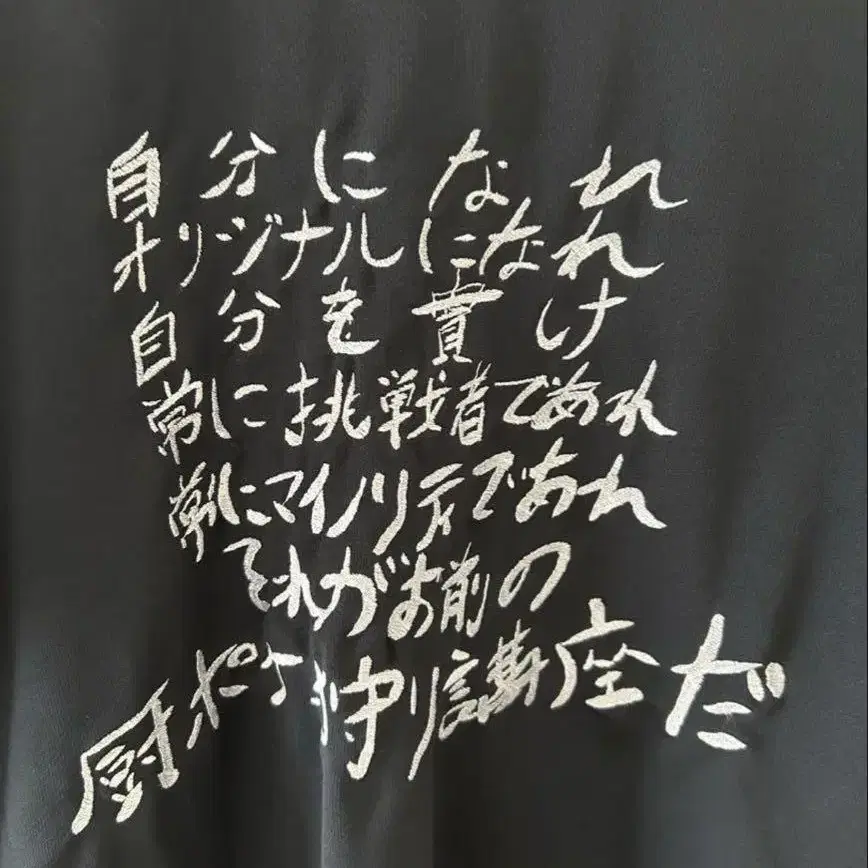 自分になれ
オリジナルになれ
自分を貫け
常に挑戦者であれ
常にマイノリティであれ
それがお前の
厨ポケ狩り講座だ